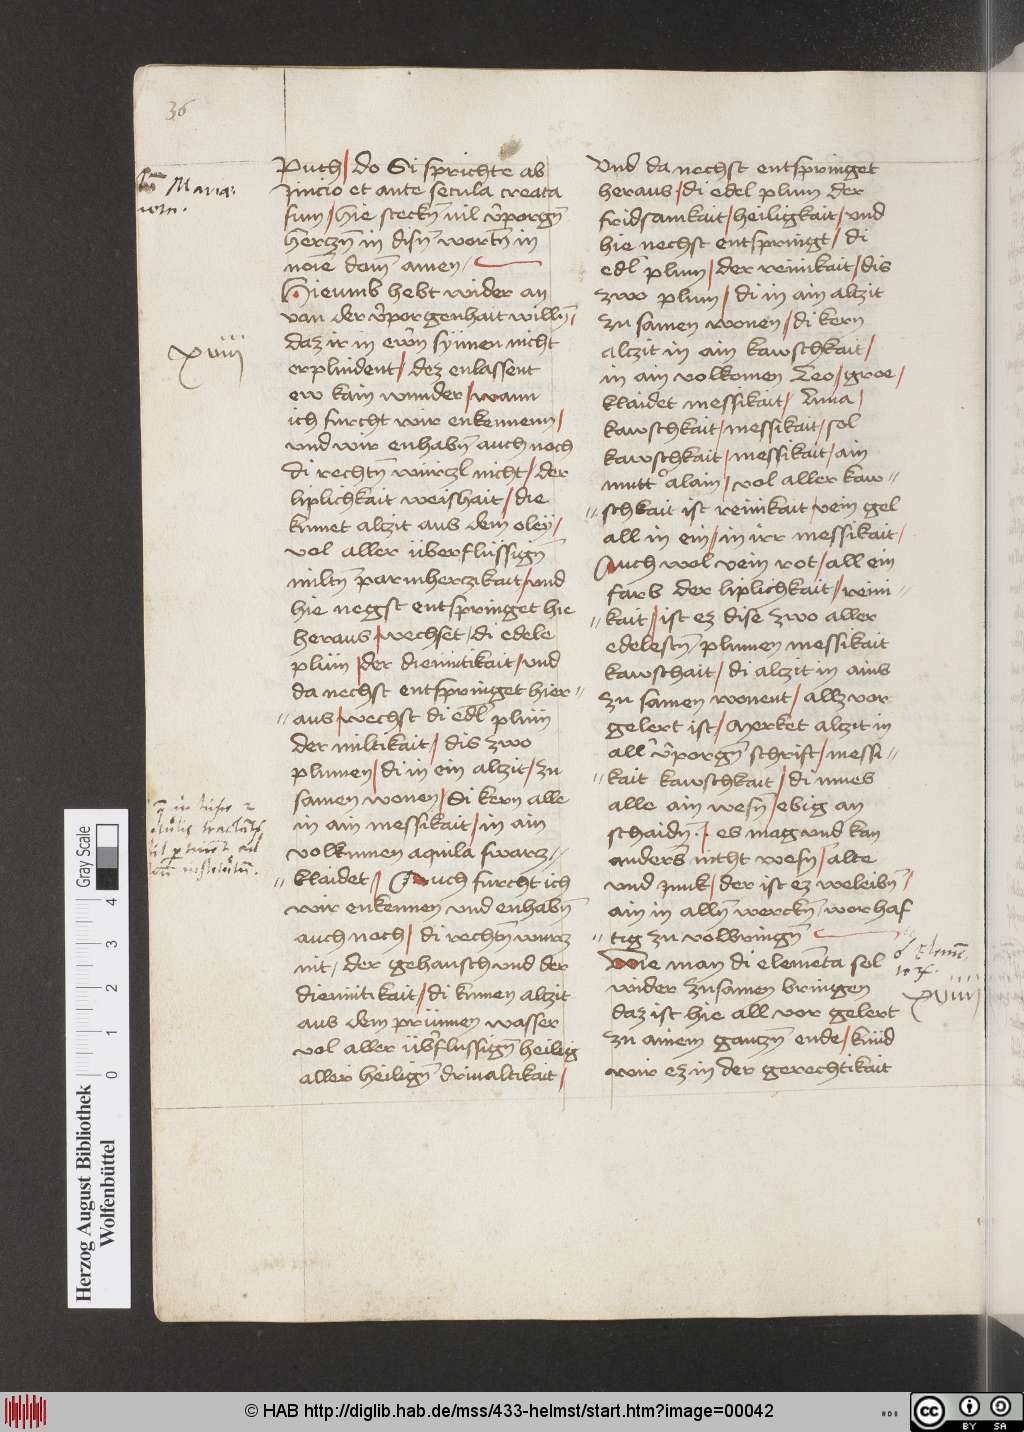 36
Maria
Puch / do Si sprichte ab
Jnicio et ante secula creata
sum / hie steckn̄ uil v̓porgn̄
herczn̄ in disn̄ wortn̄ in
noīe dom̄ amen /
Hieumb hebt wider an
van der v̓porgenhait willn̄ /
xviij
daz ir in ewrn̄ synnen nicht
erplindent / dez enlassent
ew kain wunder / wann
ich furcht wir enkennenn /
und wir enhabn̄ auch noch
di rechtn̄ wurczl nicht / der
liplichkait weishait / die
kumet alczit aus dem oley /
vol aller überflüssign̄
miltn̄ parmherczikait / und
hie negst entspringet hie
heraus / wechset / di edele
plum / der diemitikait / und
da nechst entspringet hier //
// aus / wechst di edl̓ plum
der miltikait / dis zwo
plumen / di in ein alczit / zu
samen wonen / di kern alle
in ain messikait / in ain
volkumen aquila swarz //
// klaidet / Auch furcht ich
wir enkennen und enhabn̄
auch noch / di rechtn̄ wurcz
nit / der gehausch und der
diemitikait / di kumen alczit
aus dem prünnen wasser
vol aller üb̓flussign̄ heilig
aller heilign̄ driualtikait /
Vnd da nechst entspringet
heraus / di edel plum der
fridsamkait / heiligkait / und
hie nechst entspringt / di
edl̓ plum / der reinikait / dis
zwo plum / di in ain alczit
zu samen wonen / di kern
alczit in ain kawschkait /
in ain volkomen Leo / groe /
klaidet messikait / Luna /
kawschkait / messikait / sol
kawschkait / messikait / ain
mutt̓ alain / vol aller kaw //
// schkait ist reinikait / rein gel
all in ein / in irr messikait /
Auch wol rein rot / all ein
farb der liplichkait / reini //
// kait / ist ez dise zwo aller
edelestn̄ / plumen messikait
kawschait / di alczit in ains
zu samen wonent / allz vor
gelert ist / Merket alczit in
all̓ v̓porgn̄ schrift / messi //
// kait kawschkait / di mues
alle ain wesn̄ / ebig an
schaidn̄ / es mag und kan
anders nicht wesn̄ / alte
und junk / der ist ez weleibn̄ /
ain in alln̄ werckn̄ / worhaf
// tig zu volbringn̄
Wie man di elementa sol
wider zusamen bringen
xviiij
daz ist hie all vor gelert
zu ainem ganczn̄ ende / kund
wir ez in der gerechtikait
Herzog August Bibliothek
Wolfenbüttel
0 1 2 3 4
Gray Scale
© HAB http://diglib.hab.de/mss/433-helmst/start.htm?image=00042
cc BY SA